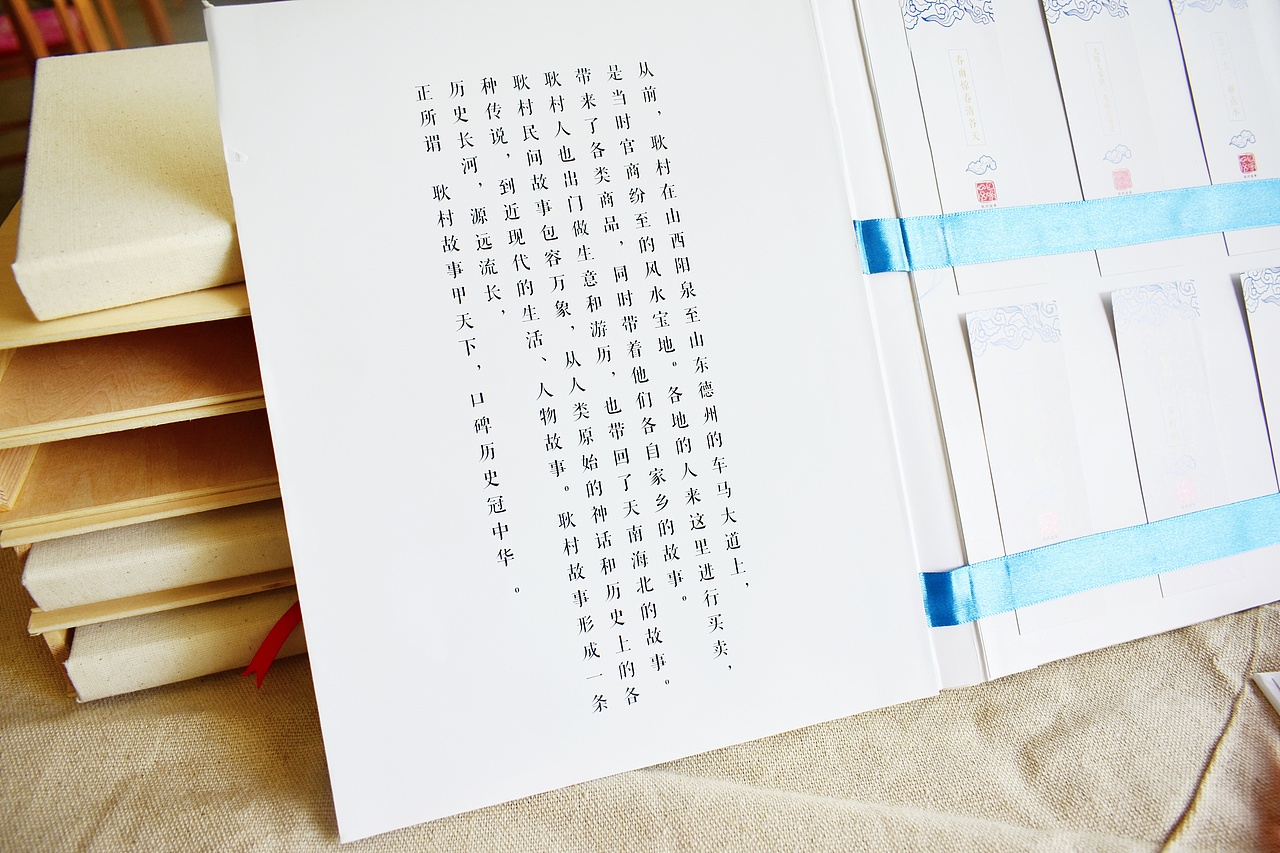 从前，耿村在山西阳泉至山东德州的车马大道上，
是当时官商纷至的风水宝地。各地的人来这里进行买卖，
带来了各类商品，同时带着他们各自家乡的故事。
耿村人也出门做生意和游历，也带回了天南海北的故事。
耿村民间故事包容万象，从人类原始的神话和历史上的各
种传说，到近现代的生活、人物故事。耿村故事形成一条
历史长河，源远流长，
正所谓 耿村故事甲天下，口碑历史冠中华。
春雨惊春清谷天